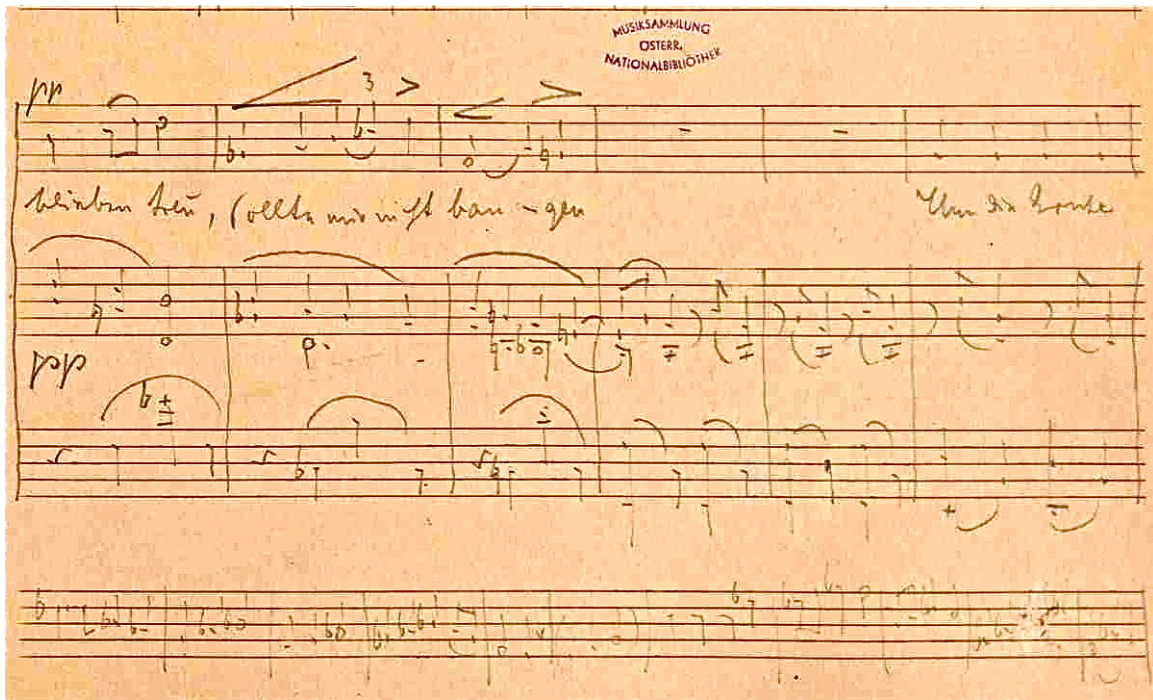 MUSIKSAMMLUNG
ÖSTERR.
NATIONALBIBLIOTHEK
pp
3
blieben treu, sollte mir nicht ban-gen
pp